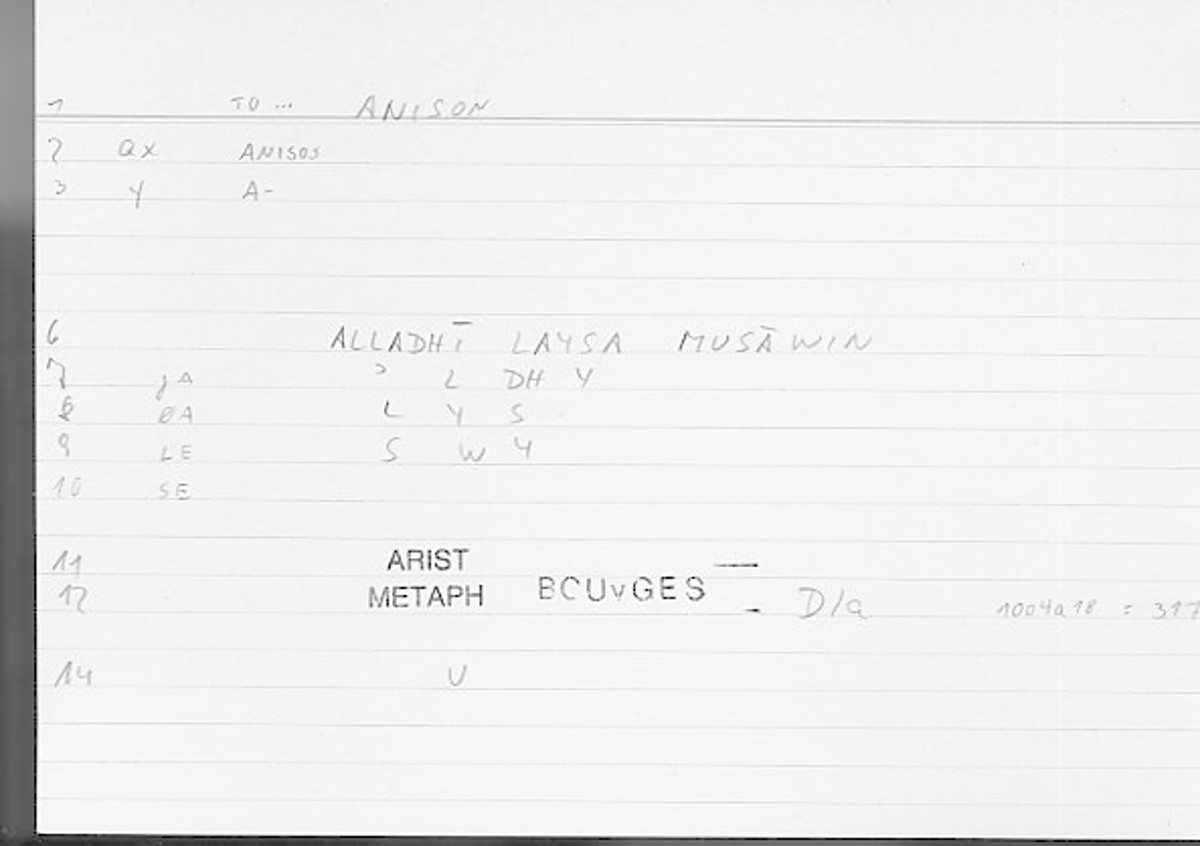 1 TO ... ANISON
2 QX ANISOS
3 Y A-
6 ALLADHĪ LAYSA MUSĀWIN
7 JA ʾ L DH Y
8 ØA L Y S
9 LE S W Y
10 SE
11 ARIST —
12 METAPH BOUYGES - D/a 1004a18 = 317
14 U